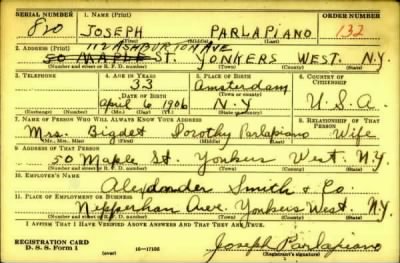 SERIAL NUMBER 1. NAME (Print) ORDER NUMBER
820 JOSEPH PARLAPIANO 132
(First) (Middle) (Last)
2. ADDRESS (Print) 112 ASHBURTON AVE
50 MAPLE ST. YONKERS WEST. N.Y.
(Number and street or R. F. D. number) (Town) (County) (State)
3. TELEPHONE 4. AGE IN YEARS 5. PLACE OF BIRTH 6. COUNTRY OF CITIZENSHIP
33 Amsterdam
DATE OF BIRTH (Town or county)
April 6 1906 N.Y U.S.A.
(Exchange) (Number) (Mo.) (Day) (Yr.) (State or country)
7. NAME OF PERSON WHO WILL ALWAYS KNOW YOUR ADDRESS 8. RELATIONSHIP OF THAT PERSON
Mrs. Bigdet Dorothy Parlapiano Wife
(Mr., Mrs., Miss) (First) (Middle) (Last)
9. ADDRESS OF THAT PERSON
50 Maple St. Yonkers West. N.Y.
(Number and street or R. F. D. number) (Town) (County) (State)
10. EMPLOYER'S NAME
Alexander Smith & Co.
11. PLACE OF EMPLOYMENT OR BUSINESS
Nepperhan Ave. Yonkers West. N.Y.
(Number and street or R. F. D. number) (Town) (County) (State)
I AFFIRM THAT I HAVE VERIFIED ABOVE ANSWERS AND THAT THEY ARE TRUE.
REGISTRATION CARD
D. S. S. Form 1 (over) 16-17105 Joseph Parlapiano
(Registrant's signature)